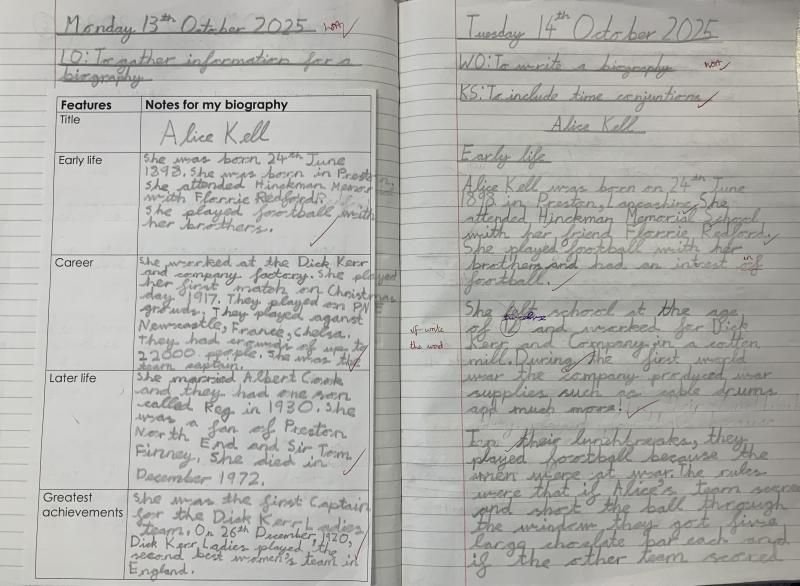 Monday 13th October 2025
LO: To gather information for a
biography
Features
Notes for my biography
Title
Alice Kell
Early life
She was born 24th June
1898. She was born in Preston.
She attended Hinckman Memor
with Florrie Redford.
She played football with
her brothers.
Career
She worked at the Dick Kerr
and company factory. She played
her first match on Christmas
day 1917. They played on PNE
grounds. They played against
Newcastle, France, Chelsa.
They had crowds of up to
22000 people. She was the
team captain.
Later life
She married Albert Cook
and they had one son
called Reg in 1930. She
was a fan of Preston
North End and Sir Tom
Finney. She died in
December 1972.
Greatest
achievements
She was the first Captain
for the Dick Kerr Ladies
team. On 26th December 1920,
Dick Kerr Ladies played the
second best women's team in
England.
Tuesday 14th October 2025
WO: To write a biography
KS: To include time conjuntions
Alice Kell
Early life
Alice Kell was born on 24th June
1898 in Preston, Lancashire. She
attended Hinckman Memorial School
with her friend Florrie Redford.
She played football with her
brothers and had an intrest in
football.
She left school at the age
twelve
of 12 and worked for Dick
Kerr and Company in a cotten
mill. During the first world
war the company produced war
supplies such as cable drums
and much more!
vf write
the word
their lunchbreaks, they
played football because the
men were at war. The rules
were that if Alice's team scored
and shot the ball through
the window they got five
large choclate bar each and
if the other team scored